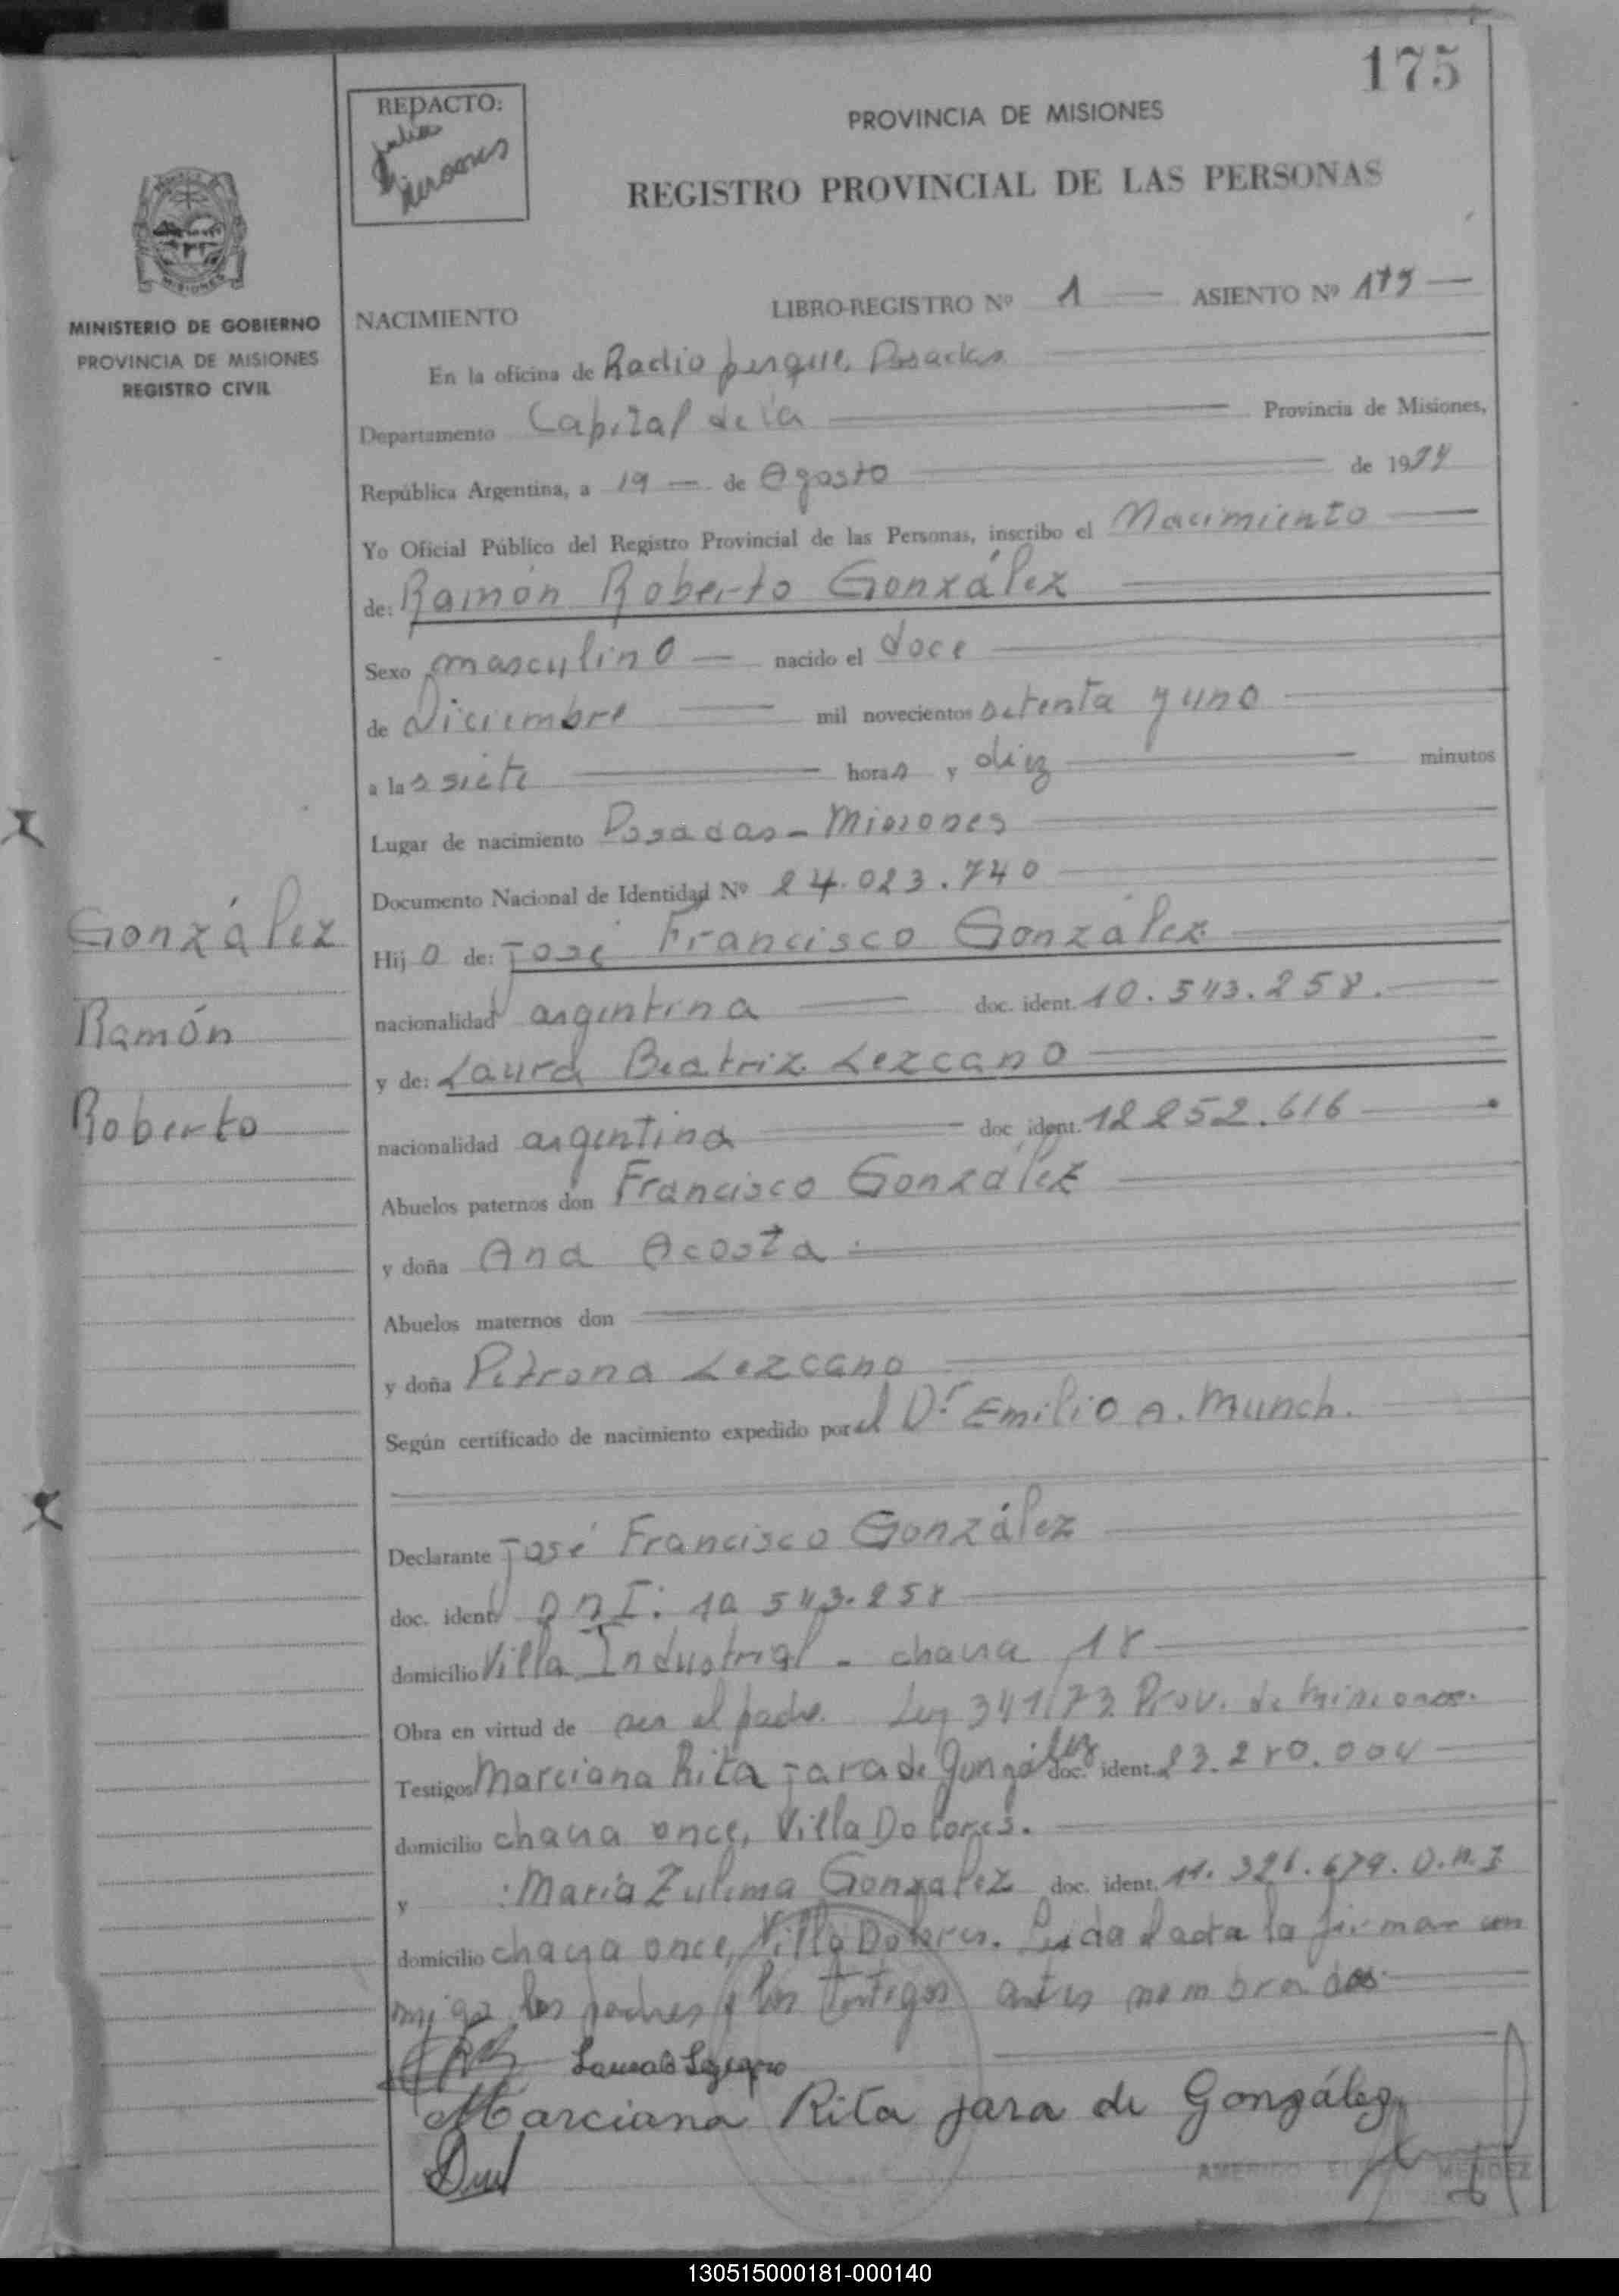 175
REDACTO:
PROVINCIA DE MISIONES
REGISTRO PROVINCIAL DE LAS PERSONAS
MISIONES
MINISTERIO DE GOBIERNO
PROVINCIA DE MISIONES
REGISTRO CIVIL
NACIMIENTO LIBRO-REGISTRO Nº 1 ASIENTO Nº 175
En la oficina de Radio parque, Posadas
Departamento Capital de la Provincia de Misiones,
República Argentina, a 19 de Agosto de 1974
Yo Oficial Público del Registro Provincial de las Personas, inscribo el Nacimiento
de: Ramón Roberto González
Sexo masculino nacido el doce
de Diciembre mil novecientos setenta y uno
a las siete horas y diez minutos
Lugar de nacimiento Posadas - Misiones
Documento Nacional de Identidad Nº 24.023.740
González
Ramón
Roberto
Hijo de: José Francisco González
nacionalidad argentina doc. ident. 10.543.258.
y de: Laura Beatriz Lezcano
nacionalidad argentina doc ident. 12 252.616
Abuelos paternos don Francisco González
y doña Ana Acosta.
Abuelos maternos don
y doña Petrona Lezcano
Según certificado de nacimiento expedido por el Dr Emilio A. Munch.
Declarante José Francisco González
doc. ident. D N I: 10 543.258
domicilio Villa Industrial - chacra 18
Obra en virtud de ser el padre. Ley 341/73 Prov. de Misiones.
Testigos Marciana Rita Jara de González doc. ident.
domicilio chacra once, Villa Dolores.
y : María Zulema González doc. ident. 11. 321.679. D.N.I
domicilio chacra once, Villa Dolores. Leida el acta la firman con
migo los padres y los testigos antes nombrados.
Laura B Lezcano
Marciana Rita Jara de González
AMERICO MENDEZ
130515000181-000140